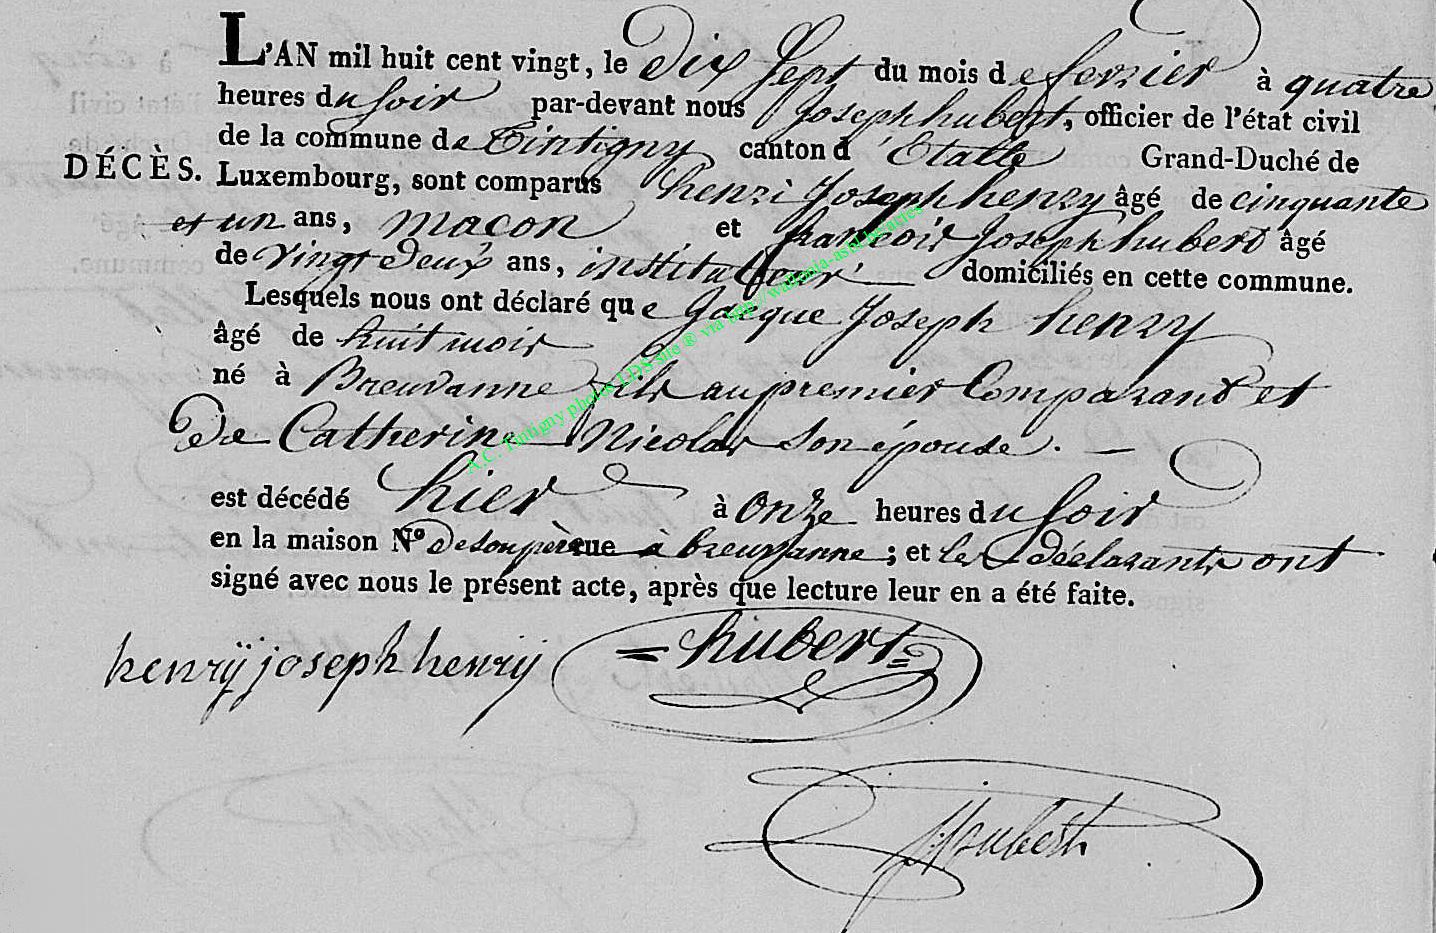 L'AN mil huit cent vingt, le dix Sept du mois de fevrier à quatre
heures du soir par-devant nous Joseph hubert, officier de l'état civil
de la commune de Tintigny canton d'Etalle Grand-Duché de
DÉCÈS. Luxembourg, sont comparus henri Joseph henry âgé de cinquante
et un ans, macon et françois Joseph hubert âgé
de vingt deux ans, instituteur domiciliés en cette commune.
Lesquels nous ont déclaré que Jacque Joseph henry
âgé de huit mois
né à Breuvanne fils au premier Comparant et
de Catherine Nicolas son épouse.
est décédé hier à onze heures du soir
en la maison N° de son père rue à breuvanne; et les déclarants ont
signé avec nous le présent acte, après que lecture leur en a été faite.
henrÿ joseph henrÿ hubert
J Houbert
A.C. Tintigny photos LDS site ® via http://wallonia-asbl.be/actes